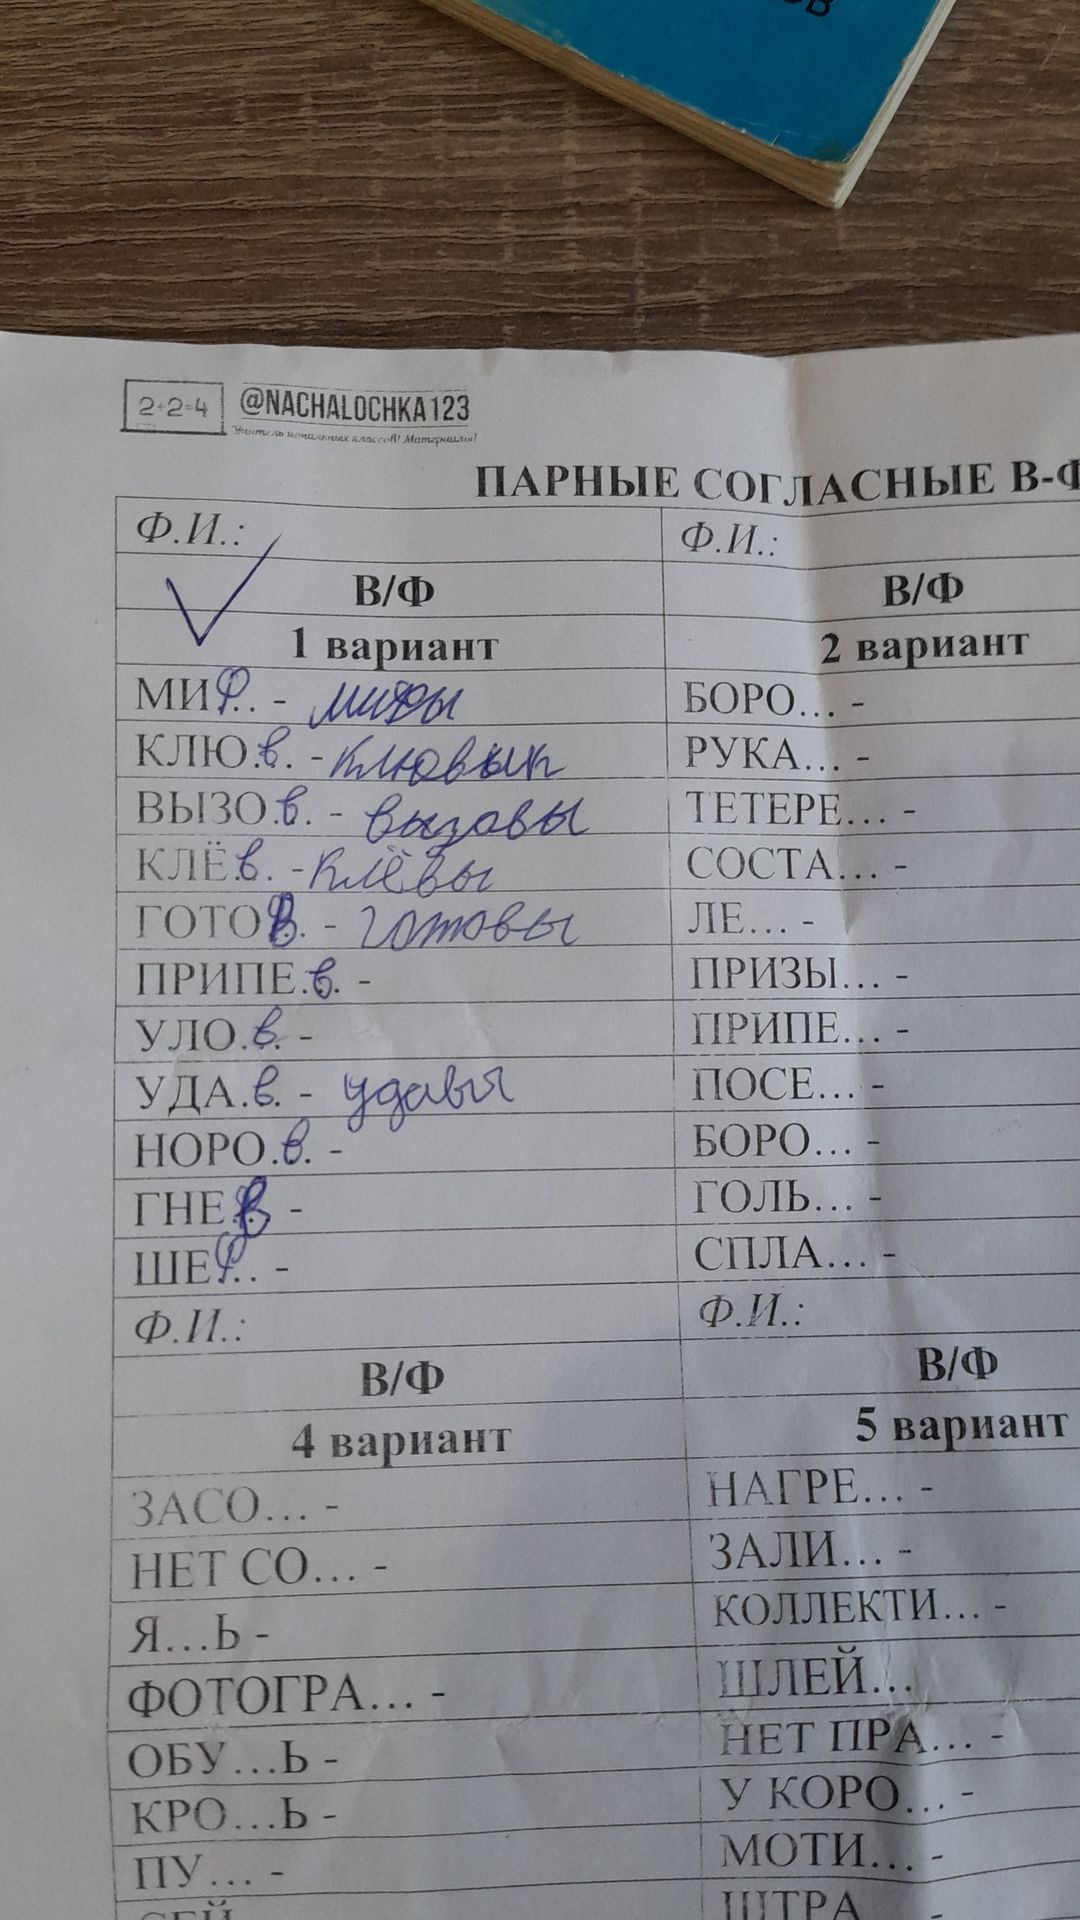 ОВ
2+2=4 @NACHALOCHKA123
Учитель начальных классов! Материалы!
ПАРНЫЕ СОГЛАСНЫЕ В-Ф
Ф.И.: Ф.И.:
В/Ф В/Ф
1 вариант 2 вариант
МИф.. - мифы БОРО... -
КЛЮ.в. - клювык РУКА... -
ВЫЗО.в. - вызовы ТЕТЕРЕ... -
КЛЁ.в. - клёвы СОСТА... -
ГОТОв. - готовы ЛЕ... -
ПРИПЕ.в. - ПРИЗЫ... -
УЛО.в. - ПРИПЕ... -
УДА.в. - удавы ПОСЕ... -
НОРО.в. - БОРО... -
ГНЕ.в - ГОЛЬ... -
ШЕф.. - СПЛА... -
Ф.И.: Ф.И.:
В/Ф В/Ф
4 вариант 5 вариант
ЗАСО... - НАГРЕ... -
НЕТ СО... - ЗАЛИ... -
Я...Ь - КОЛЛЕКТИ... -
ФОТОГРА... - ШЛЕЙ...
ОБУ...Ь - НЕТ ПРА... -
КРО...Ь - У КОРО... -
ПУ... - МОТИ... -
СЕЙ ШТРА -